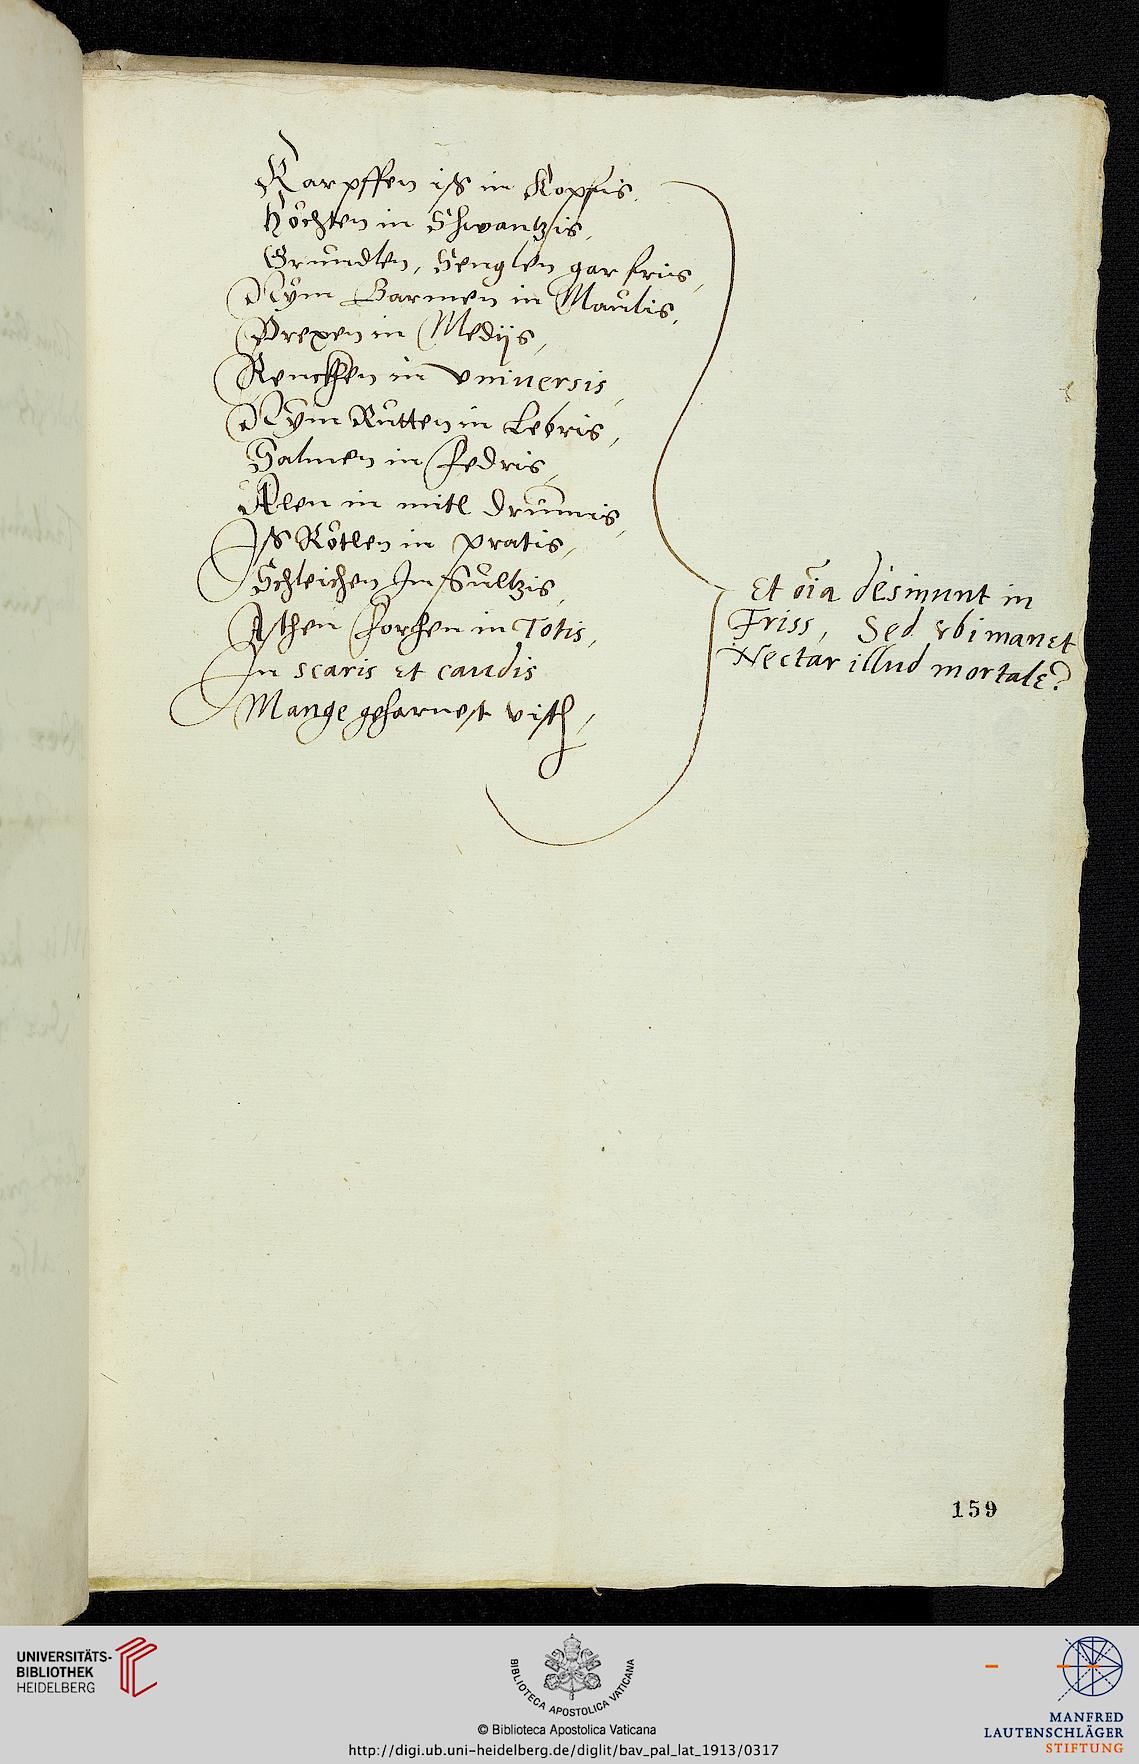 Karpffen iß in Kopffis.
Höchten in Schwantzis,
Grundlen, Senglen gar friis,
Nÿm Barmen in Maulis,
Prexen in Medijs,
Renckhen in vniuersis,
Nÿm Rutten in Lebris,
Salmen in Fedris,
Alen in mitl drümis,
Iß Rötlen in pratis,
Schleichen Im Sultzis,
Aschen Forhen in Totis,
In scaris et caudis
Mange geharnest visch,
Et oĩa desinunt in
Friss, Sed vbi manet
Nectar illud mortale?
159
UNIVERSITÄTS-
BIBLIOTHEK
HEIDELBERG
BIBLIOTECA APOSTOLICA VATICANA
© Biblioteca Apostolica Vaticana
http://digi.ub.uni-heidelberg.de/diglit/bav_pal_lat_1913/0317
MANFRED
LAUTENSCHLÄGER
STIFTUNG